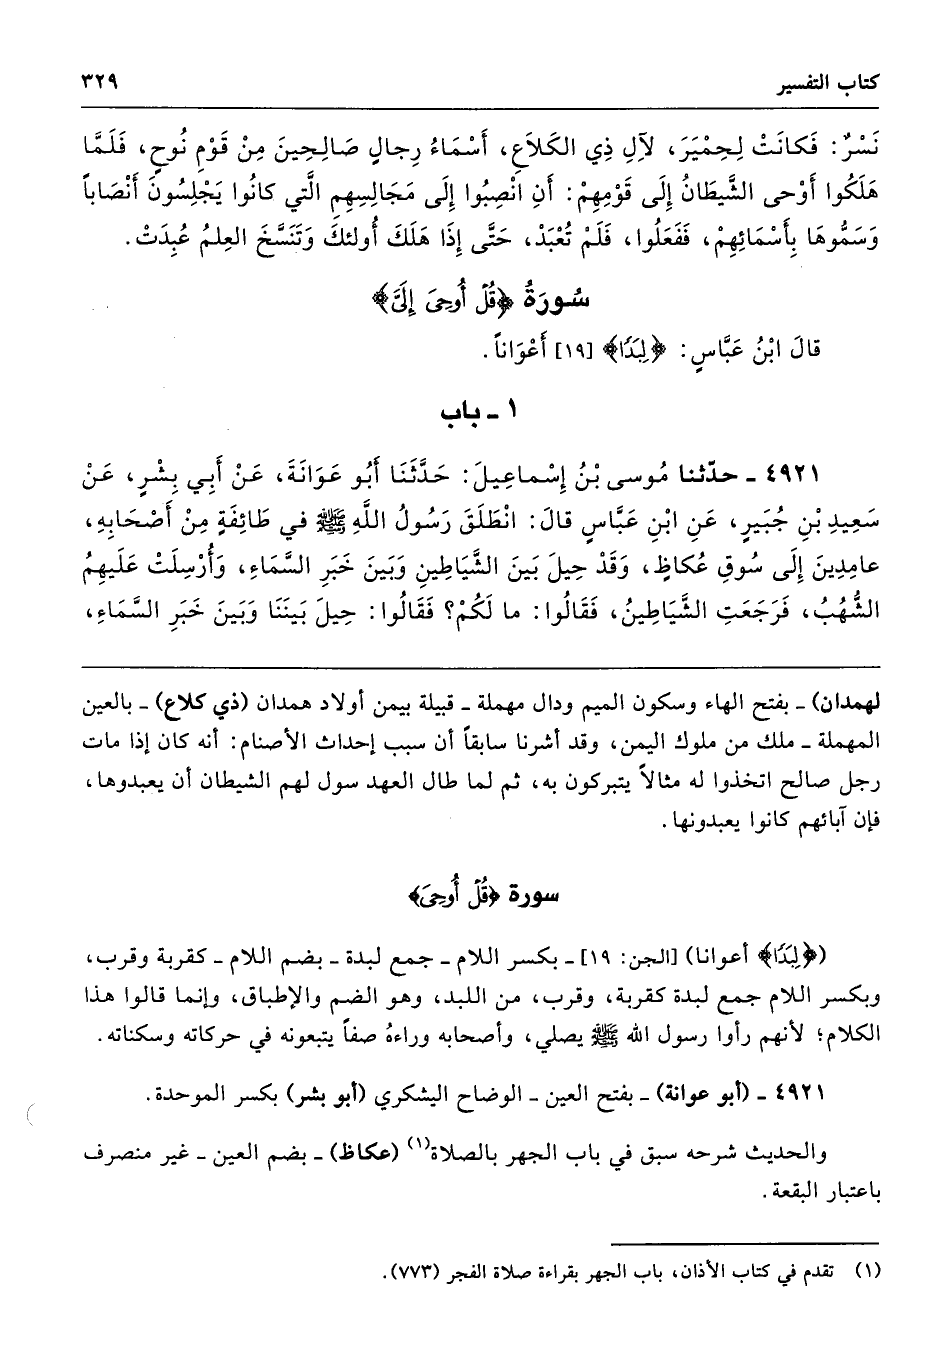 كتاب التفسير ٣٢٩
نَسْرٌ: فَكانَتْ لِحِمْيَرَ، لآلِ ذِي الكَلاَعِ، أَسْمَاءُ رِجالٍ صَالِحِينَ مِنْ قَوْمِ نُوحٍ، فَلَمَّا
هَلَكُوا أَوْحى الشَّيطَانُ إِلَى قَوْمِهِمْ: أَنِ انْصِبُوا إِلَى مَجَالِسِهِمِ الَّتي كانُوا يَجْلِسُونَ أَنْصَاباً
وَسَمُّوهَا بِأَسْمَائِهِمْ، فَفَعَلُوا، فَلَمْ تُعْبَدْ، حَتَّى إِذَا هَلَكَ أُولئكَ وَتَنَسَّخَ العِلمُ عُبِدَتْ.
سُورَةُ ﴿قُلْ أُوحِىَ إِلَىَّ﴾
قالَ ابْنُ عَبَّاسٍ: ﴿لِبَدًا﴾ [١٩] أَعْوَاناً.
١ ـ باب
٤٩٢١ ـ حدّثنا مُوسى بْنُ إِسْماعِيلَ: حَدَّثَنَا أَبُو عَوَانَةَ، عَنْ أَبِي بِشْرٍ، عَنْ
سَعِيدِ بْنِ جُبَيرٍ، عَنِ ابْنِ عَبَّاسٍ قالَ: انْطَلَقَ رَسُولُ اللَّهِ ﷺ في طَائِفَةٍ مِنْ أَصْحَابِهِ،
عامِدِينَ إِلَى سُوقِ عُكاظٍ، وَقَدْ حِيلَ بَينَ الشَّيَاطِينِ وَبَينَ خَبَرِ السَّمَاءِ، وَأُرْسِلَتْ عَلَيهِمُ
الشُّهُبُ، فَرَجَعَتِ الشَّيَاطِينُ، فَقَالُوا: ما لَكُمْ؟ فَقَالُوا: حِيلَ بَيْنَنَا وَبَينَ خَبَرِ السَّمَاءِ،
لهمدان) ـ بفتح الهاء وسكون الميم ودال مهملة ـ قبيلة بيمن أولاد همدان (ذي كلاع) ـ بالعين
المهملة ـ ملك من ملوك اليمن، وقد أشرنا سابقاً أن سبب إحداث الأصنام: أنه كان إذا مات
رجل صالح اتخذوا له مثالاً يتبركون به، ثم لما طال العهد سول لهم الشيطان أن يعبدوها،
فإن آبائهم كانوا يعبدونها.
سورة ﴿قُلْ أُوحِىَ﴾
(﴿لِبَدًا﴾ أعوانا) [الجن: ١٩] ـ بكسر اللام ـ جمع لبدة ـ بضم اللام ـ كقربة وقرب،
وبكسر اللام جمع لبدة كقربة، وقرب، من اللبد، وهو الضم والإطباق، وإنما قالوا هذا
الكلام؛ لأنهم رأوا رسول الله ﷺ يصلي، وأصحابه وراءهُ صفاً يتبعونه في حركاته وسكناته.
٤٩٢١ ـ (أبو عوانة) ـ بفتح العين ـ الوضاح اليشكري (أبو بشر) بكسر الموحدة.
والحديث شرحه سبق في باب الجهر بالصلاة(١) (عكاظ) ـ بضم العين ـ غير منصرف
باعتبار البقعة.
(١) تقدم في كتاب الأذان، باب الجهر بقراءة صلاة الفجر (٧٧٣).